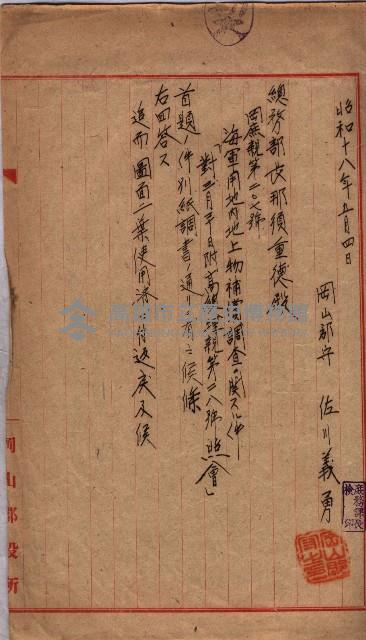 昭和十八年五月四日
岡山郡守 佐川義勇
總務部長那須重德殿
岡庶親第二〇七號
海軍用地内地上物補償調査ニ関スル件
對三月三十日附高親第二八號照會」
首題ノ件別紙調書ノ通有之候條
右回答ス
追而圖面二葉使用濟ニ付返戻及候
庶務課長
檢印
岡山郡役所
高雄市立歷史博物館